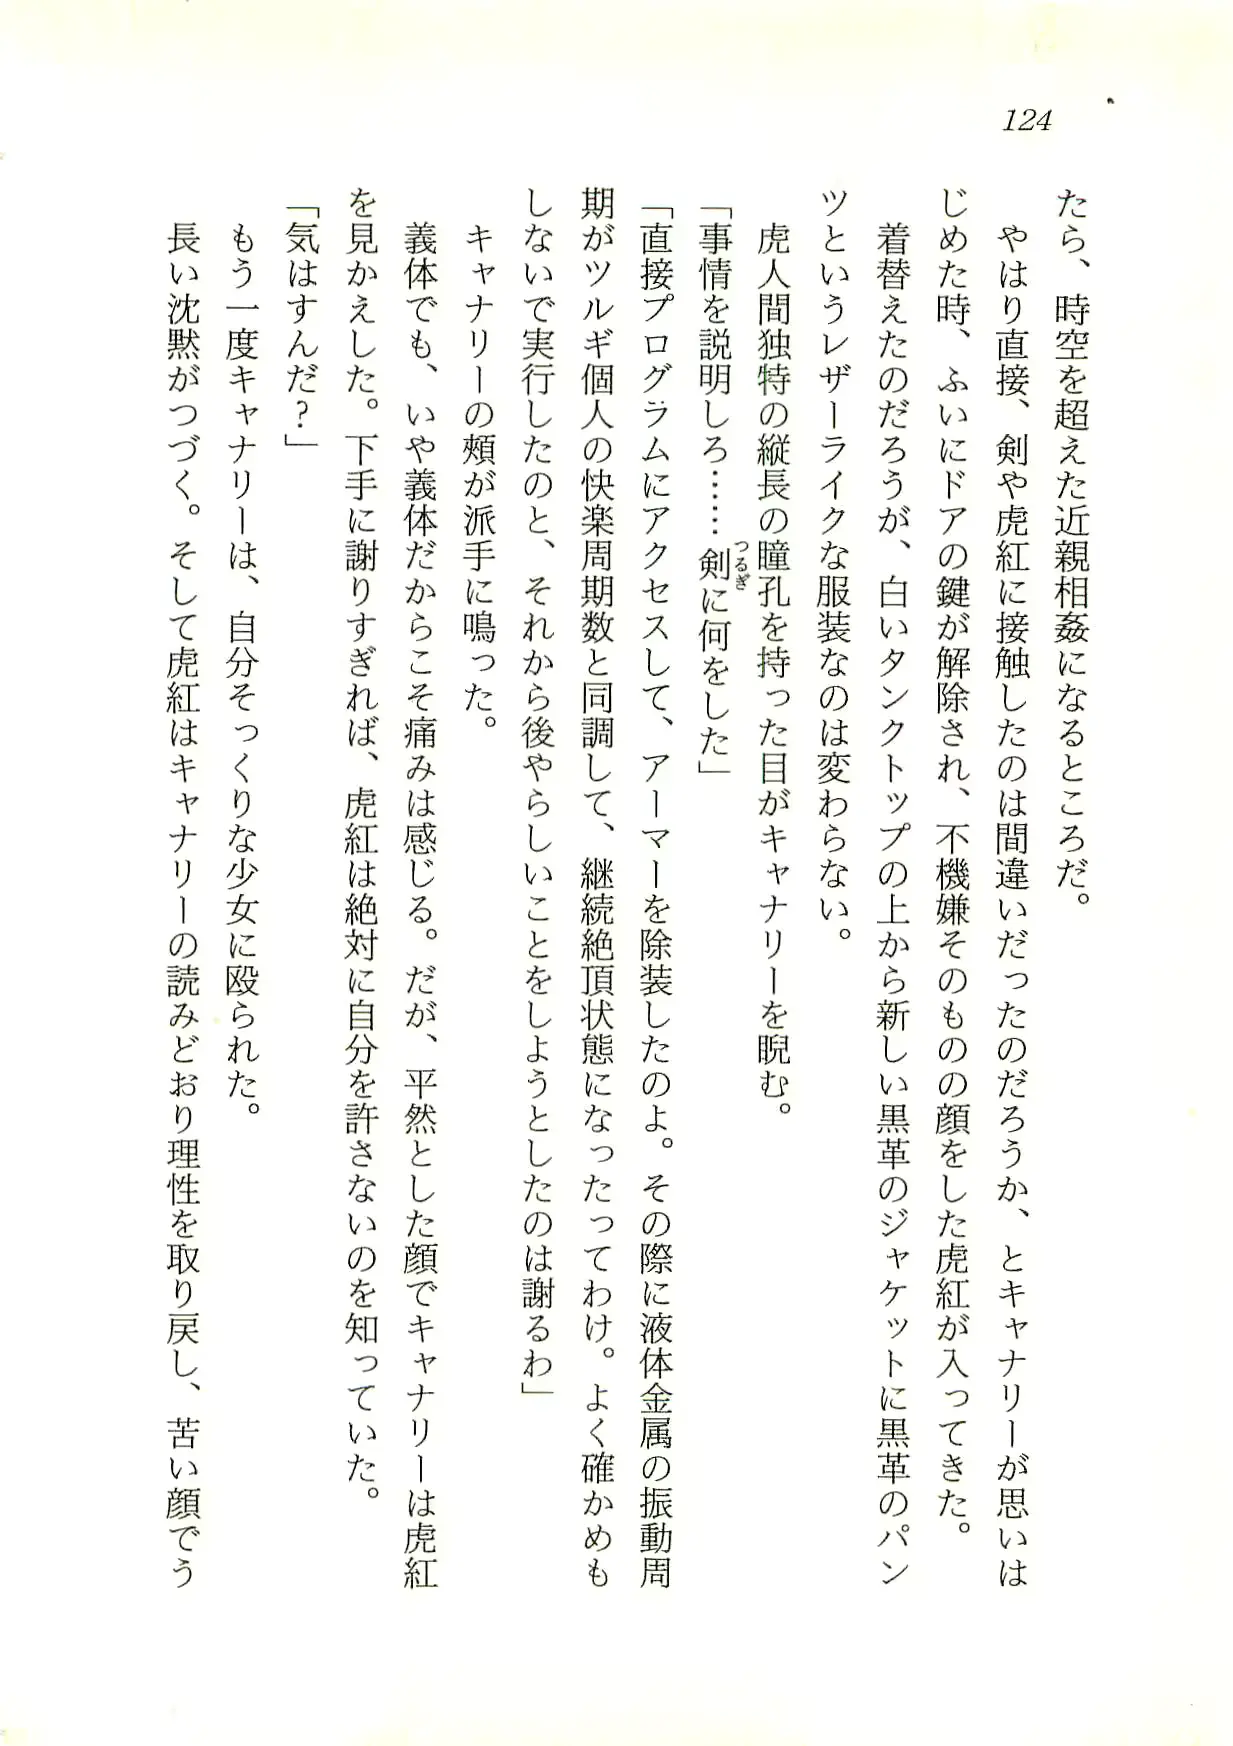 124
たら、時空を超えた近親相姦になるところだ。
　やはり直接、剣や虎紅に接触したのは間違いだったのだろうか、とキャナリーが思いは
じめた時、ふいにドアの鍵が解除され、不機嫌そのものの顔をした虎紅が入ってきた。
　着替えたのだろうが、白いタンクトップの上から新しい黒革のジャケットに黒革のパン
ツというレザーライクな服装なのは変わらない。
　虎人間独特の縦長の瞳孔を持った目がキャナリーを睨む。
「事情を説明しろ……剣つるぎに何をした」
「直接プログラムにアクセスして、アーマーを除装したのよ。その際に液体金属の振動周
期がツルギ個人の快楽周期数と同調して、継続絶頂状態になったってわけ。よく確かめも
しないで実行したのと、それから後やらしいことをしようとしたのは謝るわ」
　キャナリーの頬が派手に鳴った。
　義体でも、いや義体だからこそ痛みは感じる。だが、平然とした顔でキャナリーは虎紅
を見かえした。下手に謝りすぎれば、虎紅は絶対に自分を許さないのを知っていた。
「気はすんだ？」
　もう一度キャナリーは、自分そっくりな少女に殴られた。
　長い沈黙がつづく。そして虎紅はキャナリーの読みどおり理性を取り戻し、苦い顔でう